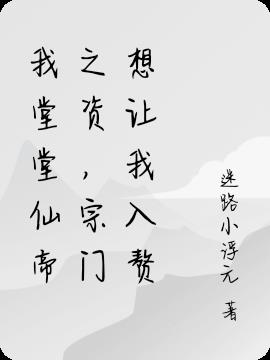 我堂堂仙帝
之资，宗门
想让我入赘
迷路小浮元 著